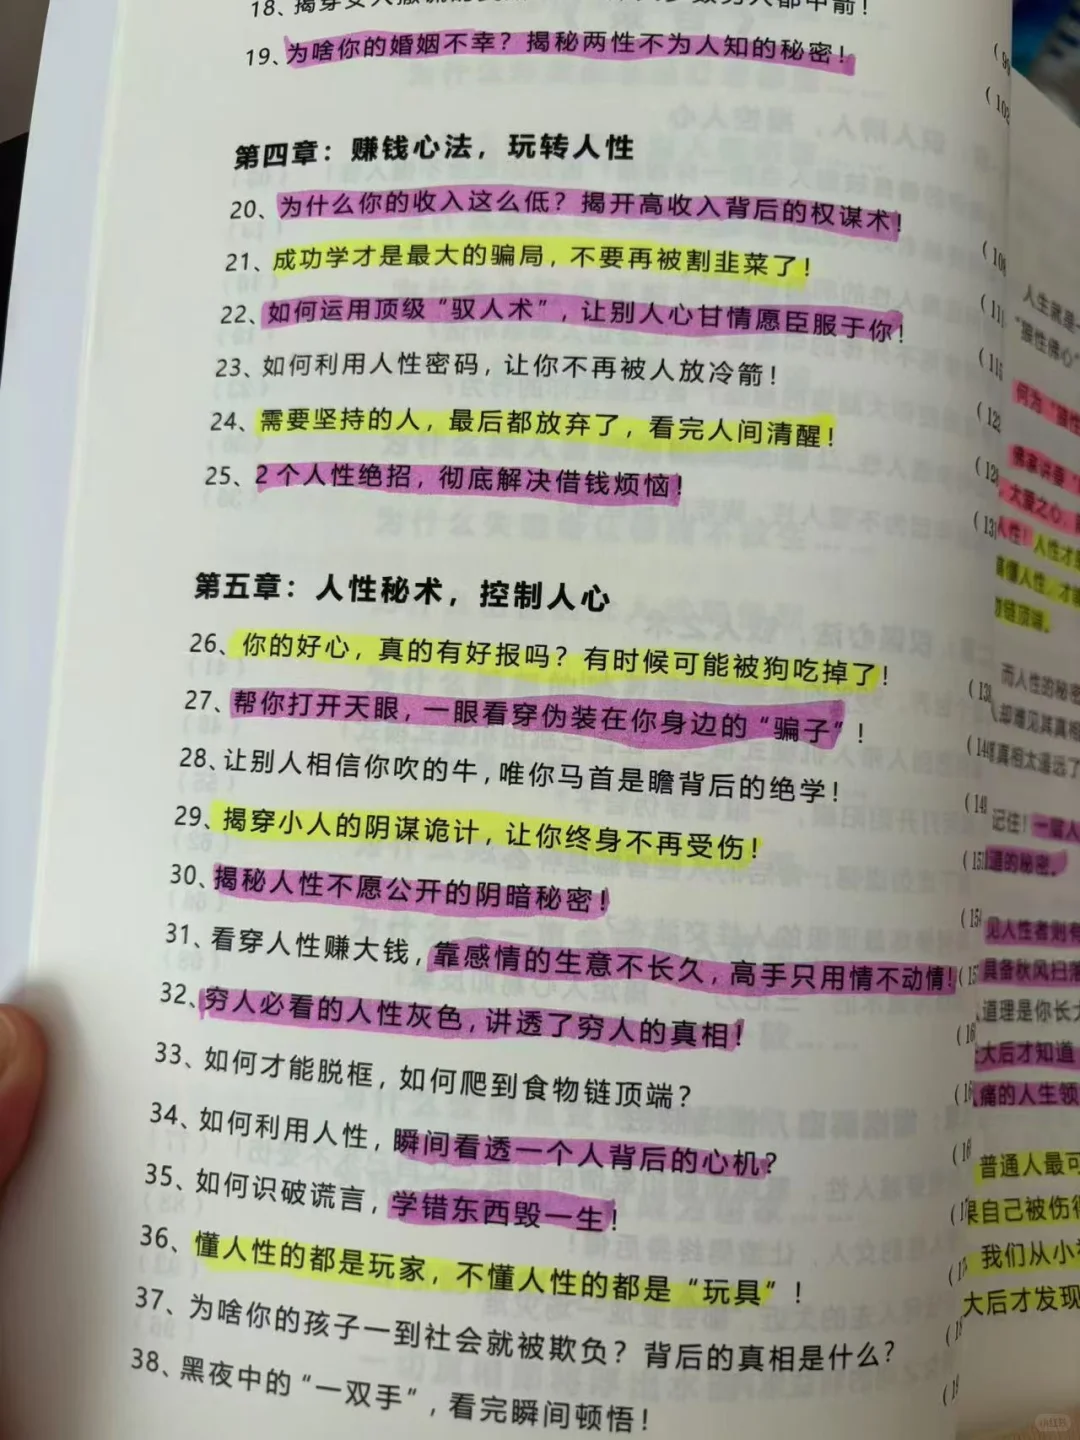 19、为啥你的婚姻不幸？揭秘两性不为人知的秘密！
第四章：赚钱心法，玩转人性
20、为什么你的收入这么低？揭开高收入背后的权谋术！
21、成功学才是最大的骗局，不要再被割韭菜了！
22、如何运用顶级“驭人术”，让别人心甘情愿臣服于你！
23、如何利用人性密码，让你不再被人放冷箭！
24、需要坚持的人，最后都放弃了，看完人间清醒！
25、2个人性绝招，彻底解决借钱烦恼！
第五章：人性秘术，控制人心
26、你的好心，真的有好报吗？有时候可能被狗吃掉了！
27、帮你打开天眼，一眼看穿伪装在你身边的“骗子”！
28、让别人相信你吹的牛，唯你马首是瞻背后的绝学！
29、揭穿小人的阴谋诡计，让你终身不再受伤！
30、揭秘人性不愿公开的阴暗秘密！
31、看穿人性赚大钱，靠感情的生意不长久，高手只用情不动情！
32、穷人必看的人性灰色，讲透了穷人的真相！
33、如何才能脱框，如何爬到食物链顶端？
34、如何利用人性，瞬间看透一个人背后的心机？
35、如何识破谎言，学错东西毁一生！
36、懂人性的都是玩家，不懂人性的都是“玩具”！
37、为啥你的孩子一到社会就被欺负？背后的真相是什么？
38、黑夜中的“一双手”，看完瞬间顿悟！
人生就是一
“狼性佛心”
何为“狼性
佛家讲要
，大爱之心，
人性！人性才
懂人性，才
链顶端。
而人性的秘密
却难见其真相
真相太遥远了
记住！一
道的秘密。
见人性者则有
具备秋风扫落
道理是你长大
大后才知道
痛的人生领
普通人最可
果自己被伤得
我们从小
大后才发现
小红书